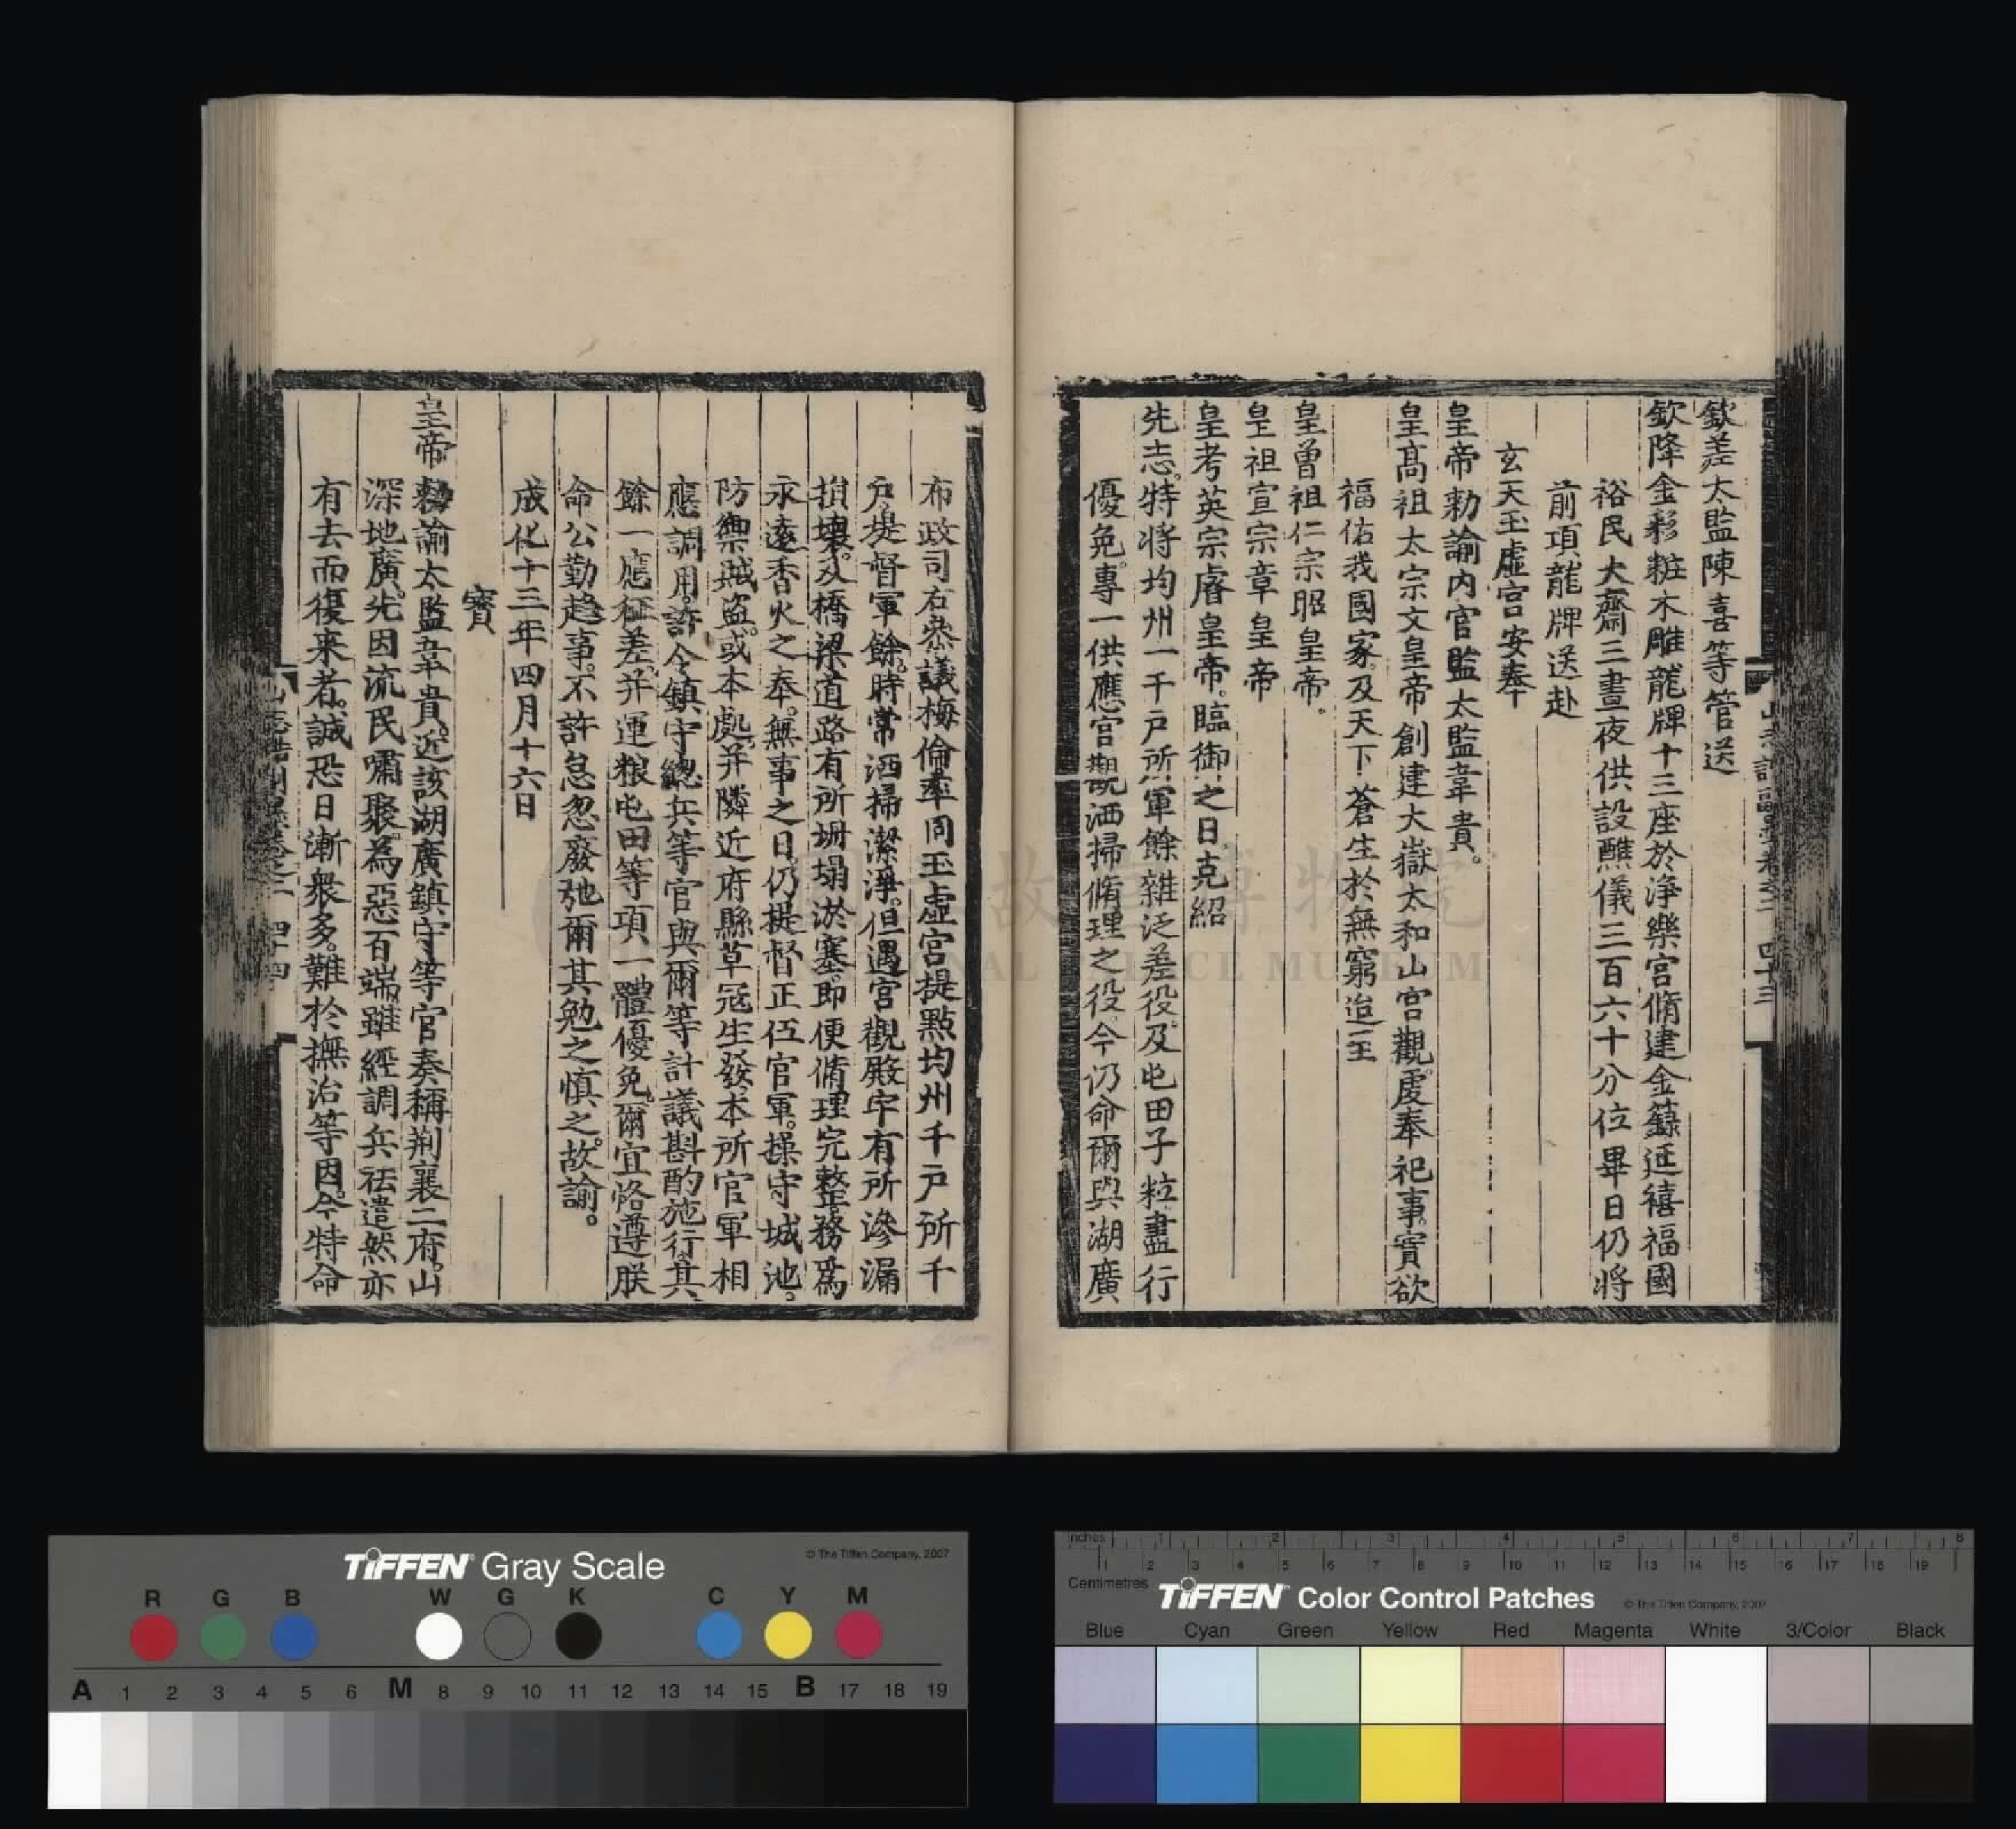 欽差太監陳喜等管送
欽降金彩粧木雕龍牌十三座於淨樂宮脩建金籙延禧福國
裕民大齋三晝夜供設醮儀三百六十分位畢日仍將
前項龍牌送赴
玄天玉虛宮安奉
皇帝勑諭內官監太監韋貴。
皇高祖太宗文皇帝創建大嶽太和山宮觀虔奉祀事實欲
福佑我國家及天下蒼生於無窮迨至
皇曾祖仁宗昭皇帝。
皇祖宣宗章皇帝
皇考英宗睿皇帝。臨御之日克紹
先志。特將均州一千戶所軍餘雜泛差役及屯田子粒盡行
優免。專一供應宮觀洒掃脩理之役。今仍命爾與湖廣
布政司右叅議梅倫率同玉虛宮提點均州千戶所千
戶提督軍餘時常洒掃潔淨。但遇宮觀殿宇有所滲漏
損壞。及橋梁道路有所坍塌淤塞。即便脩理完整。務爲
永遠香火之奉。無事之日。仍提督正伍官軍。操守城池。
防禦賊盜。或本處并隣近府縣草寇生發。本所官軍相
應調用。許令鎮守總兵等官與爾等計議斟酌施行。其
餘一應征差。并運粮屯田等項一體優免。爾宜恪遵朕
命公勤趋事。不許怠忽廢弛爾其勉之愼之。故諭。
成化十三年四月十六日
寳
皇帝勑諭太監韋貴。近該湖廣鎮守等官奏稱荆襄二府。山
深地廣。先因流民嘯聚。為惡百端。雖經調兵祛遣。然亦
有去而復来者。誠恐日漸衆多。難於撫治等因。今特命
國立故宮博物院
NATIONAL PALACE MUSEUM
TIFFEN Gray Scale
© The Tiffen Company, 2007
R G B W G K C Y M
A 1 2 3 4 5 6 M 8 9 10 11 12 13 14 15 B 17 18 19
inches 1 2 3 4 5 6 7 8
1 2 3 4 5 6 7 8 9 10 11 12 13 14 15 16 17 18 19
Centimetres
TIFFEN Color Control Patches
© The Tiffen Company, 2007
Blue Cyan Green Yellow Red Magenta White 3/Color Black